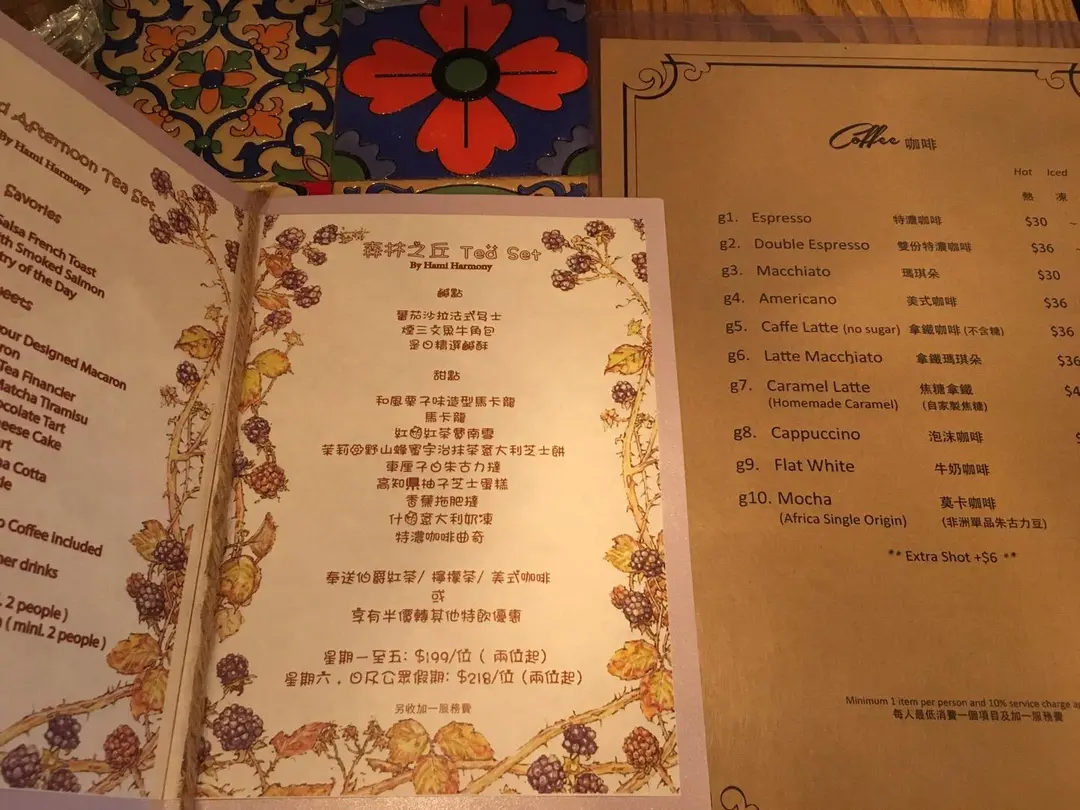 d Afternoon Tea Set
By Hami Harmony
Savories
Salsa French Toast
th Smoked Salmon
try of the Day
eets
our Designed Macaron
ron
Tea Financier
Matcha Tiramisu
ocolate Tart
eese Cake
rt
na Cotta
o Coffee Included
her drinks
. 2 people )
n ( mini. 2 people )
森林之丘 Tea Set
By Hami Harmony
鹹點
蕃茄沙拉法式多士
煙三文魚牛角包
是日精選鹹酥
甜點
和風栗子味造型馬卡龍
馬卡龍
紅紅茶費南雪
茉莉野山蜂蜜宇治抹茶意大利芝士餅
車厘子白朱古力撻
高知県柚子芝士蛋糕
香蕉拖肥撻
什意大利奶凍
特濃咖啡曲奇
奉送伯爵紅茶/ 檸檬茶/ 美式咖啡
或
享有半價轉其他特飲優惠
星期一至五: $199/位 ( 兩位起)
星期六，日及公眾假期: $218/位 (兩位起)
另收加一服務費
Coffee 咖啡
Hot Iced
熱 凍
g1. Espresso 特濃咖啡 $30 ~
g2. Double Espresso 雙份特濃咖啡 $36
g3. Macchiato 瑪琪朵 $30
g4. Americano 美式咖啡 $36
g5. Caffe Latte (no sugar) 拿鐵咖啡 (不含糖) $36
g6. Latte Macchiato 拿鐵瑪琪朵 $36
g7. Caramel Latte 焦糖拿鐵 $4
(Homemade Caramel) (自家製焦糖)
g8. Cappuccino 泡沫咖啡
g9. Flat White 牛奶咖啡
g10. Mocha 莫卡咖啡
(Africa Single Origin) (非洲單品朱古力豆)
** Extra Shot +$6 **
Minimum 1 item per person and 10% service charge ap
每人最低消費一個項目及加一服務費